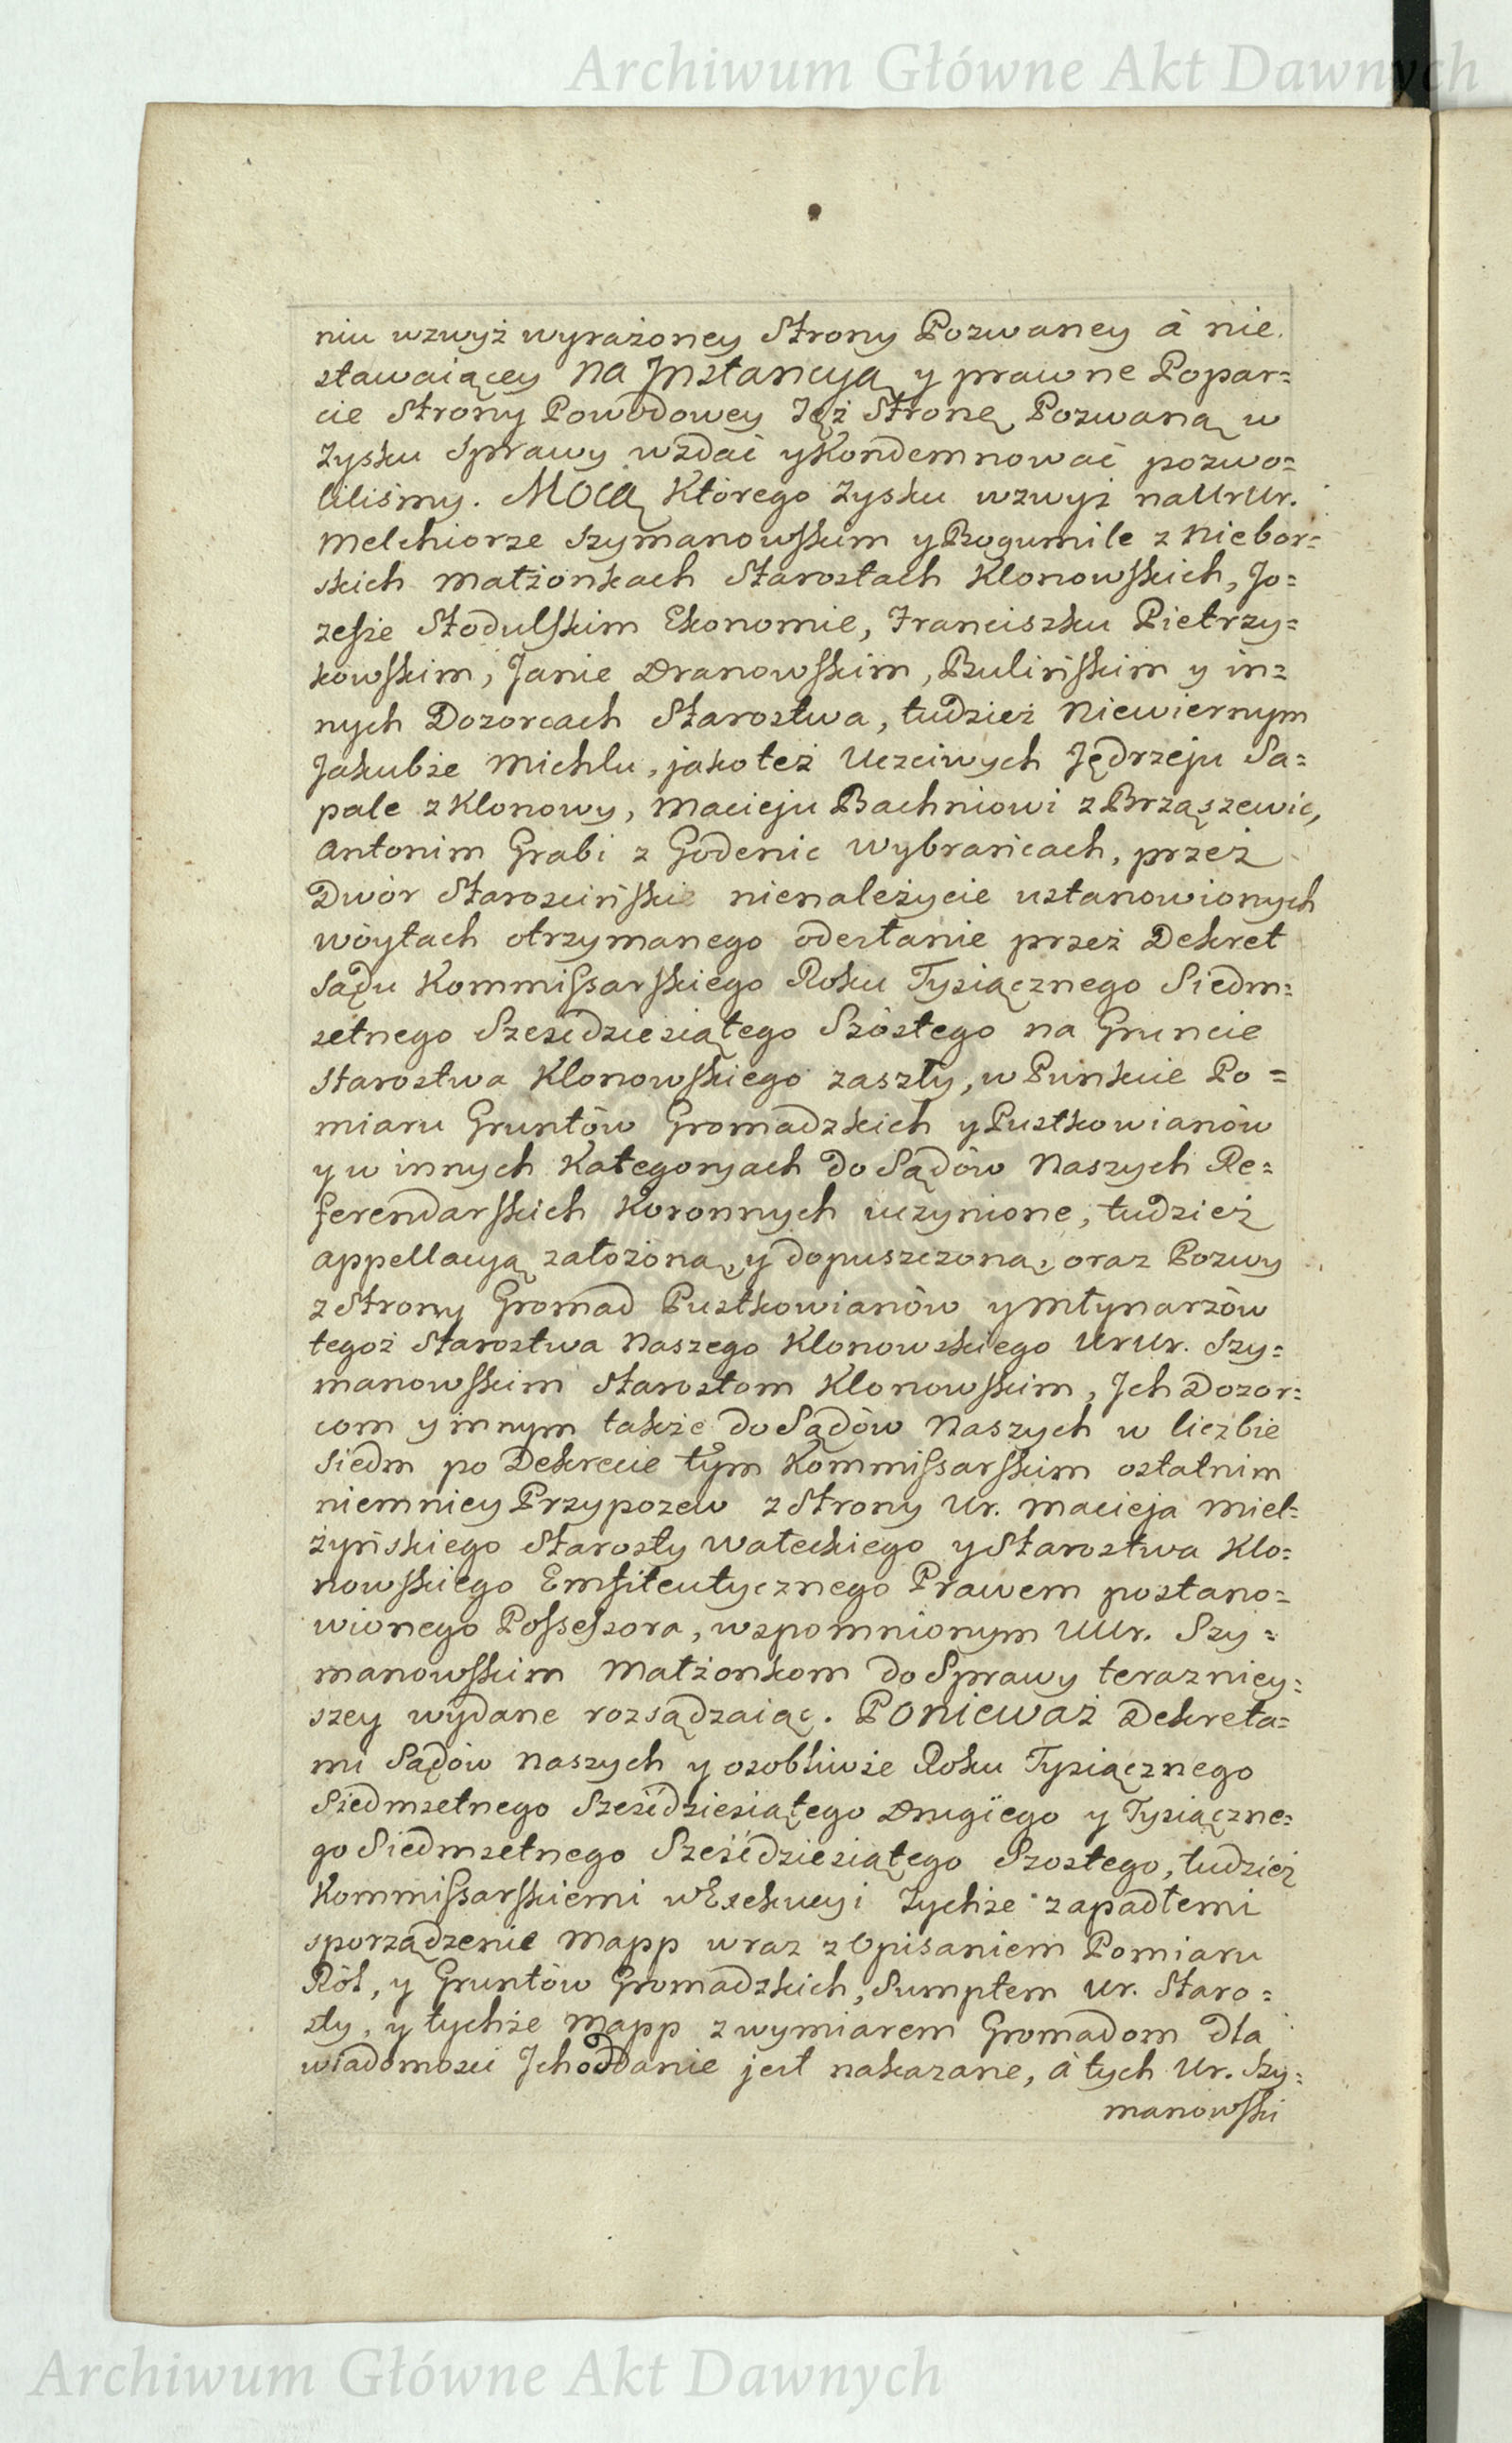 Archiwum Główne Akt Dawnych
niu wzwyż wyrażoney Strony Pozwaney à nie.
stawaiącey Na Jnstancyą y prawne Popar=
cie Strony Powodowey Tęż Stronę Pozwaną w
Zysku Sprawy wzdać y Kondemnować pozwo=
liliśmy. Mocą Którego Zysku wzwyż na Ur Ur.
Melchiorze Szymanowskim y Bogumile z Niebor=
skich Małżonkach Starostach Klonowskich, Jo=
zefie Stodulskim Ekonomie, Franciszku Pietrzy=
kowskim, Janie Dranowskim, Bulińskim y in=
nych Dozorcach Starostwa, tudzież Niewiernym
Jakubie Michlu, jako też Uczciwych Jędrzeju Sa=
pale z Klonowy, Macieju Bachniowi z Brząszewic,
Antonim Grabi z Godenic Wybrańcach, przez
Dwór Starościński nienależycie ustanowionych
Wóytach otrzymanego odesłanie przez Dekret
Sądu Kommissarskiego Roku Tysiącznego Siedm=
setnego Sześćdziesiątego Szóstego na Gruncie
Starostwa Klonowskiego zaszły, w Punkcie Po=
miaru Gruntów Gromadzkich y Pustkowianów
y w innych Kategoryach do Sądów Naszych Re=
ferendarskich Koronnych uczynione, tudzież
appellacyą założoną, y dopuszczoną, oraz Pozwy
z Strony Gromad Pustkowianów y Młynarzów
tegoż Starostwa Naszego Klonowskiego Ur Ur. Szy=
manowskim Starostom Klonowskim, Jch Dozor=
com y innym także do Sądów Naszych w liczbie
Siedm po Dekrecie tym Kommissarskim ostatnim
niemniey Przypozew z Strony Ur. Macieja Miel=
żyńskiego Starosty Wałeckiego y Starostwa Klo=
nowskiego Emfiteutycznego Prawem postano=
wionego Possessora, wspomnionym UUr. Szy=
manowskim Małżonkom do Sprawy teraźniey=
szey wydane rozsądzaiąc. Ponieważ Dekreta=
mi Sądów Naszych y osobliwie Roku Tysiącznego
Siedmsetnego Sześćdziesiątego Drugiego y Tysiączne=
go Siedmsetnego Sześćdziesiątego Szostego, tudzież
Kommissarskiemi w Exekucyi Tychże zapadłemi
sporządzenie Mapp wraz z Opisaniem Pomiaru
Ról, y Gruntów Gromadzkich, Sumptem Ur. Staro=
sty, y tychże Mapp z wymiarem Gromadom dla
wiadomości Jch oddanie jest nakazane, à tych Ur. Szy=
manowski
Archiwum Główne Akt Dawnych